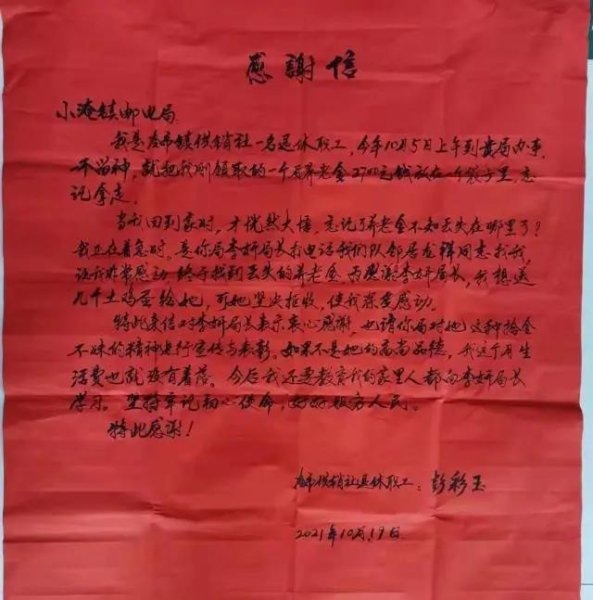 感謝信
小淹镇邮电局
我是 镇供销社一名退休职工,今年10月5日上午到贵局办事,
不留神,就把我刚领取的一个月养老金2700元钱放在一个袋子里,忘
记拿走。
当我回到家时,才恍然大悟,忘记了养老金不知丢失在哪里了?
我正在着急时,是你局李妍局长打电话我们队邻居龙 同志找我,
让我非常感动,终于找到丢失的养老金,为感谢李妍局长,我想送
几斤土鸡蛋给她,可她坚决拒收,使我深受感动。
特此来信对李妍局长表示衷心感谢,也请你局对她这种拾金
不昧的精神进行宣传与表彰。如果不是她的高尚品德,我这个月生
活费也就没有着落。今后我还要教育我的家里人都向李妍局长
学习。坚持牢记初心使命,好好服务人民。
特此感谢!
供销社退休职工:彭彩玉
2021年10月19日